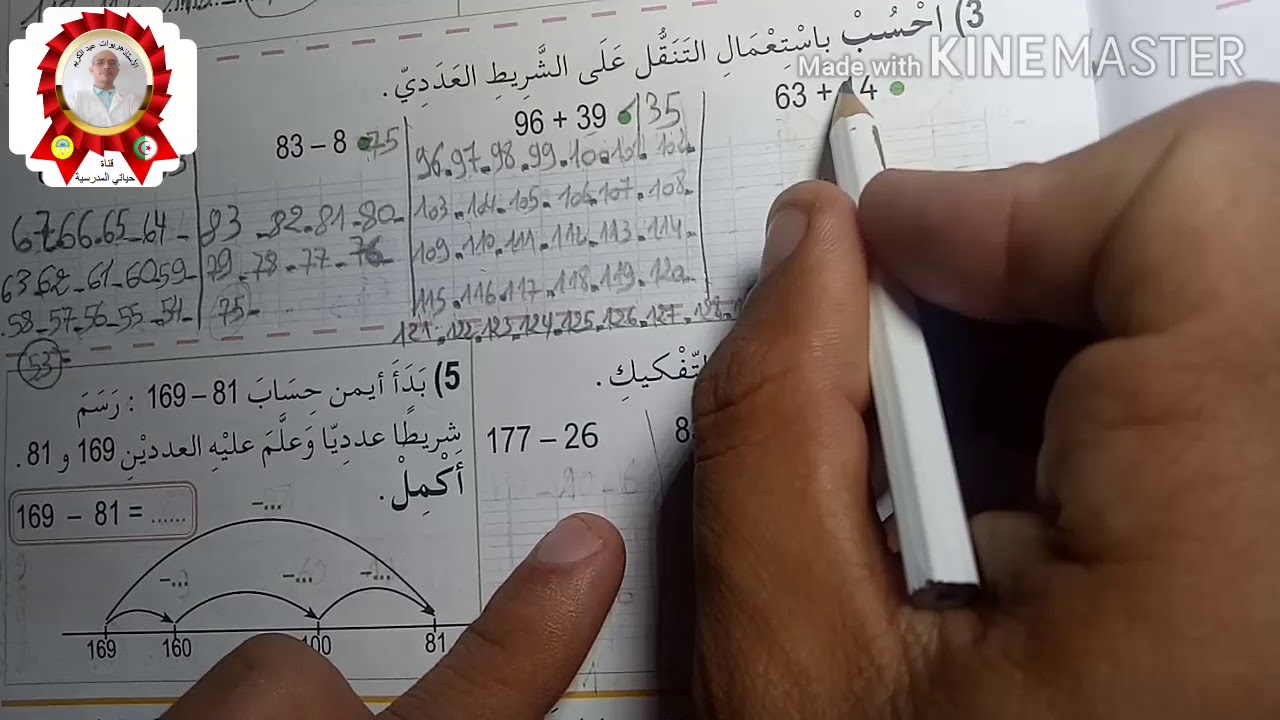 3) احْسُبْ بِاسْتِعْمَالِ التَنَقُّل عَلَى الشَّرِيطِ العَدَدِيّ .
Made with KINEMASTER
63 + 4
96 + 39 135
83 – 8 75
96.97.98.99.100.101.102.
103.104.105.106.107.108.
109.110.111.112.113.114.
115.116.117.118.119.120.
121.122.123.124.125.126.127.128.
83 -82-81-80-
79-78-77-76-
75-
67-66-65-64-
63-62-61-60-59-
58-57-56-55-54-
53
5) بَدَأَ أيمن حِسَابَ 81 – 169 : رَسَمَ
شِريطًا عدديّا وَعلَّمَ عليْهِ العدديْنِ 169 و 81 .
أكْمِلْ.
169 – 81 = ......
169 160 100 81
177 – 26
الأستاذ حريوات عبد الكريم
قناة
حياتي المدرسية